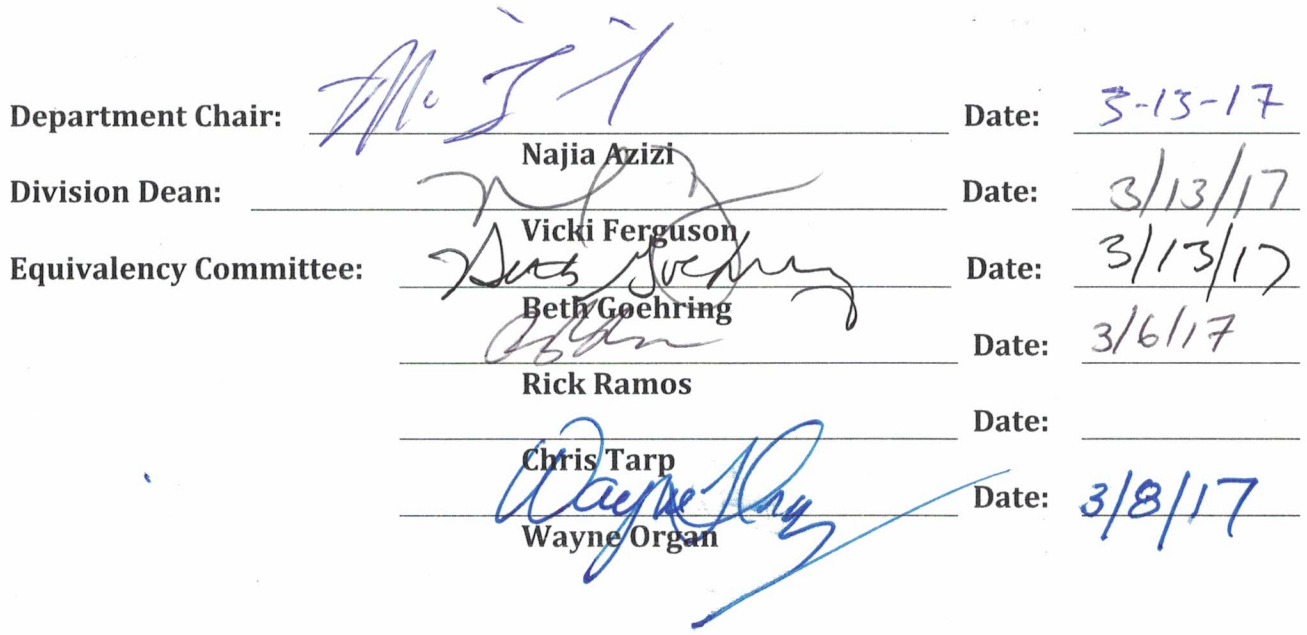 Department Chair: Date: 3-13-17
Najia Azizi
Division Dean: Date: 3/13/17
Vicki Ferguson
Equivalency Committee: Beth Goehring Date: 3/13/17
Beth Goehring
Date: 3/6/17
Rick Ramos
Date:
Chris Tarp
Wayne Organ Date: 3/8/17
Wayne Organ